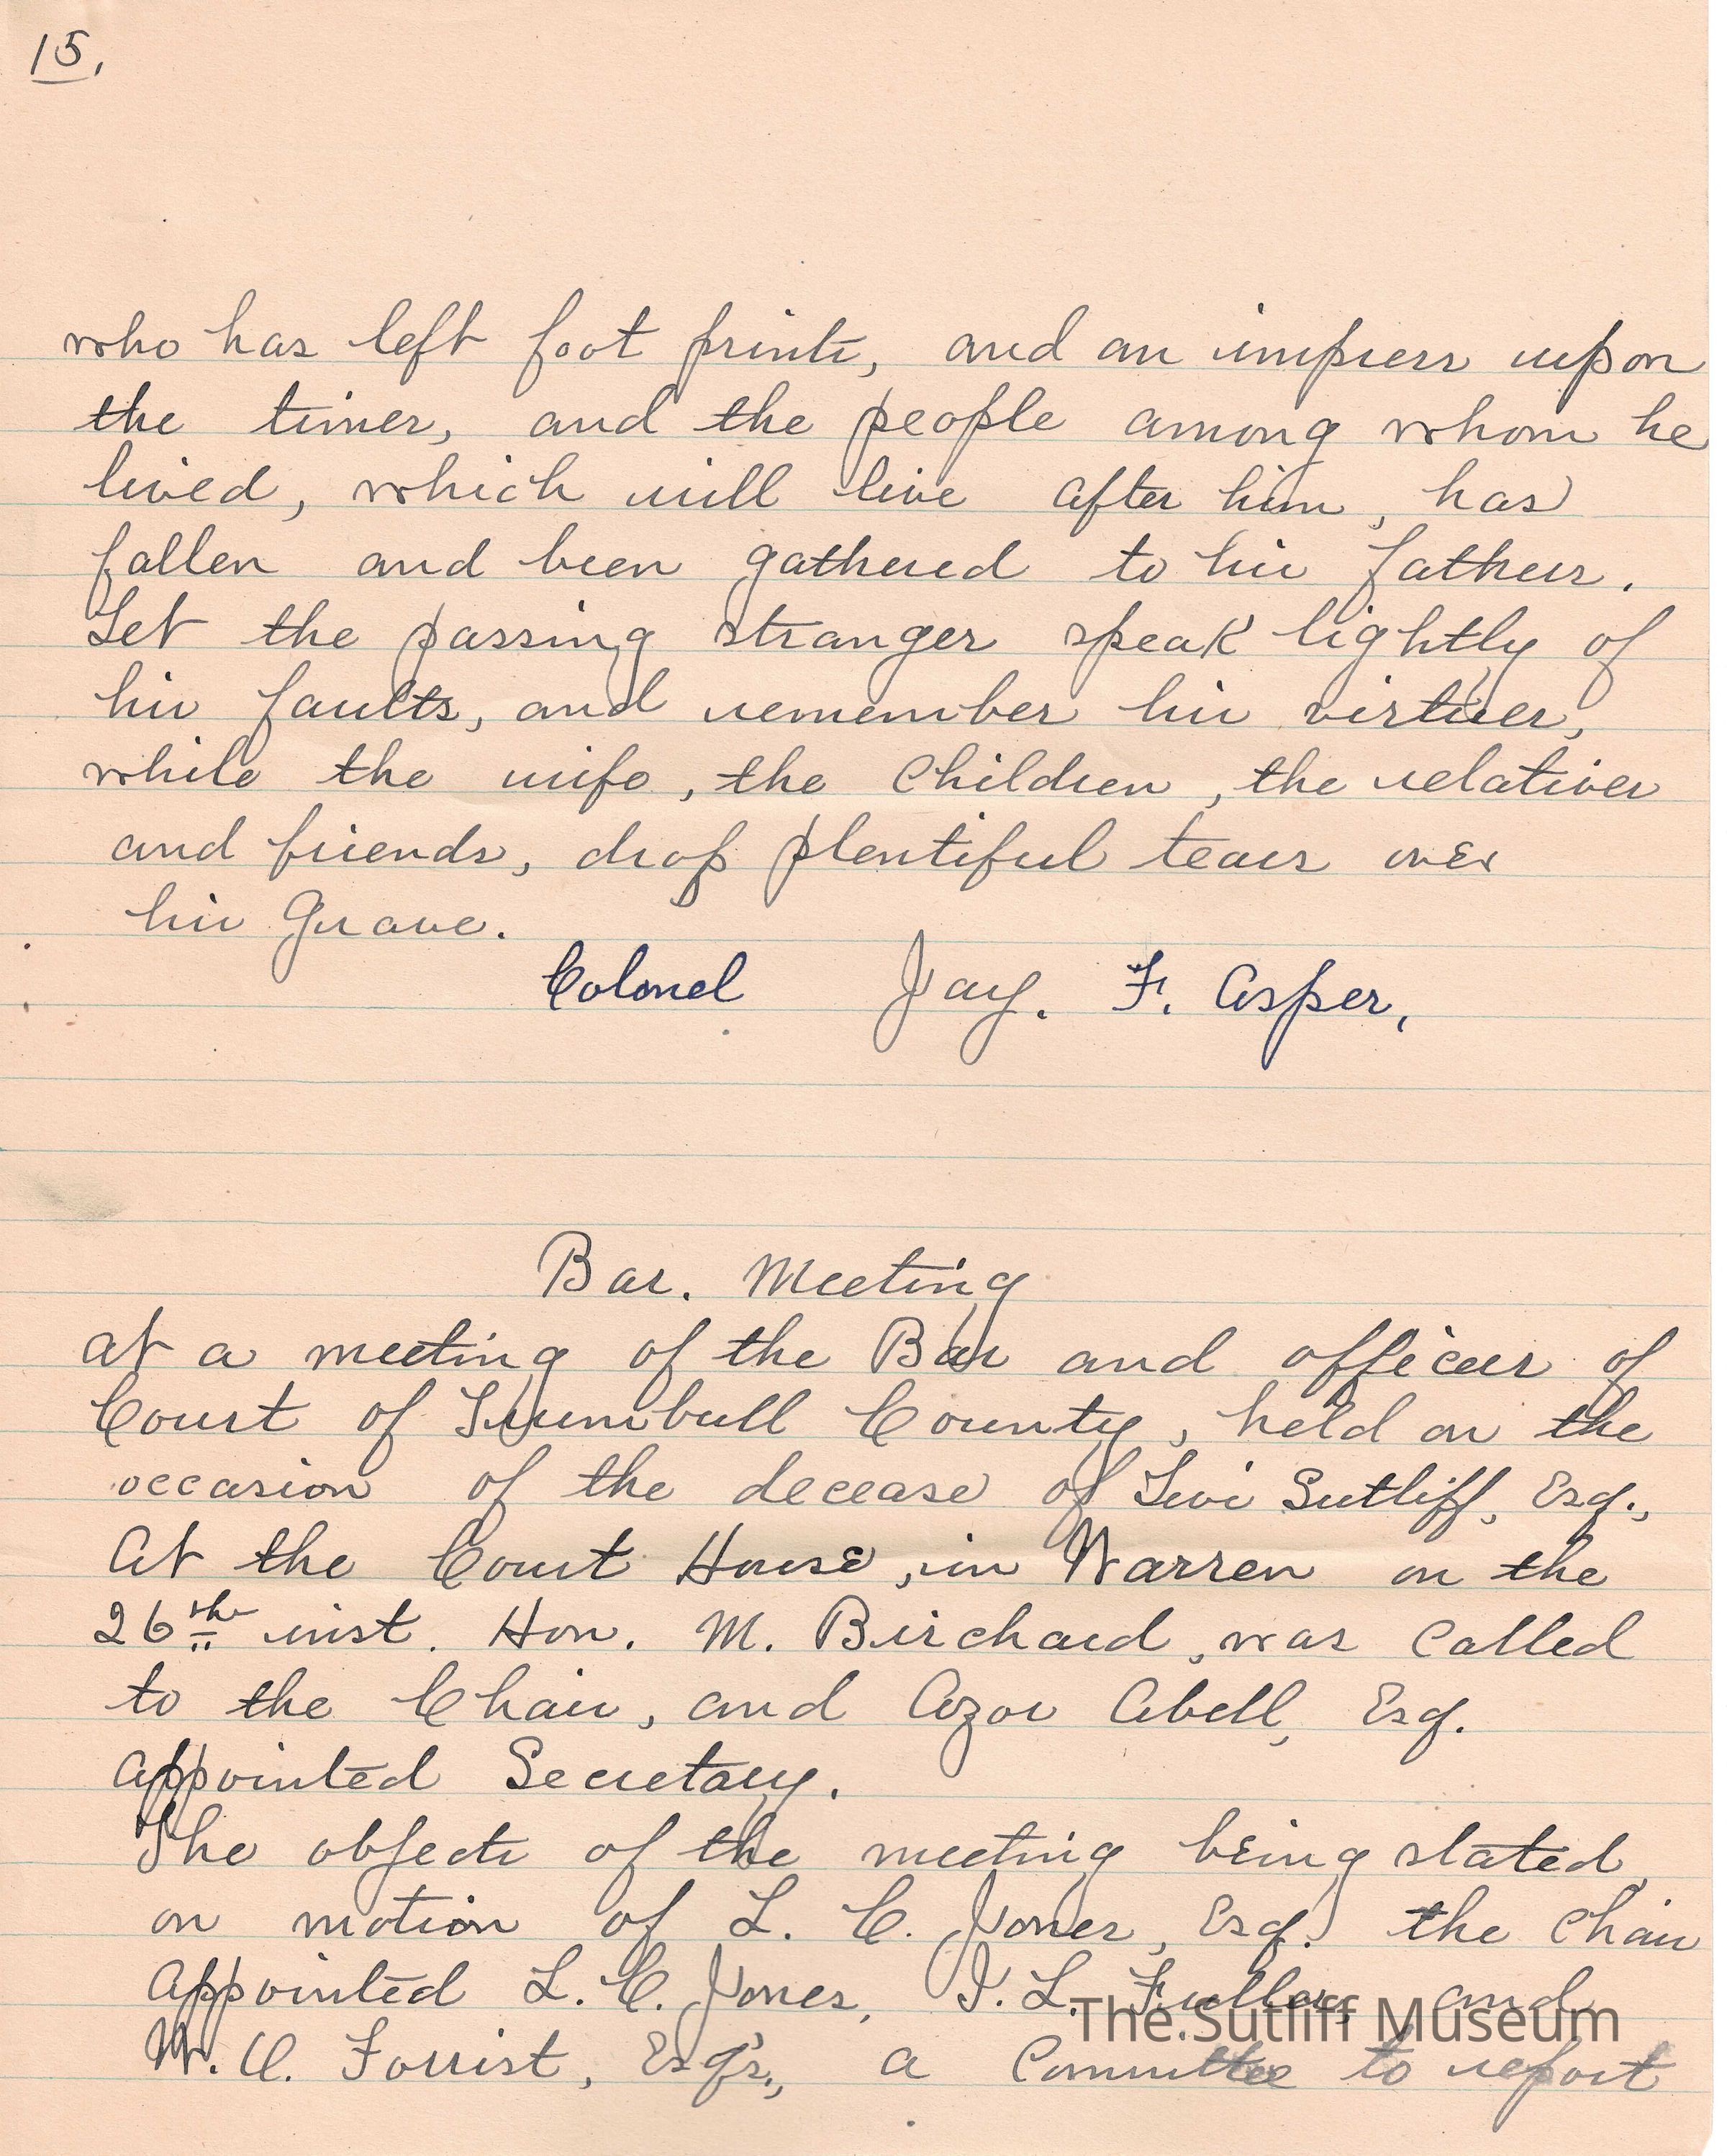 15.
who has left foot prints, and an impress upon
the times, and the people among whom he
lived, which will live after him, has
fallen and been gathered to his fathers.
Let the passing stranger speak lightly of
his faults, and remember his virtues,
while the wife, the Children, the relatives
and friends, drop plentiful tears over
his Grave.
Colonel Jay. F. Asper,
Bar. Meeting
at a meeting of the Bar and officers of
Court of Trumbull County, held on the
occasion of the decease of Levi Sutliff, Esq.,
At the Court House, in Warren on the
26th inst. Hon. M. Birchard, was Called
to the Chair, and Azor Abell, Esq.
Appointed Secretary.
The objects of the meeting being stated,
on motion of L. C. Jones, Esq. the Chair
Appointed L. C. Jones, I. L. Fuller, and
W. C. Forrist, Esq's., a Committee to report
The Sutliff Museum